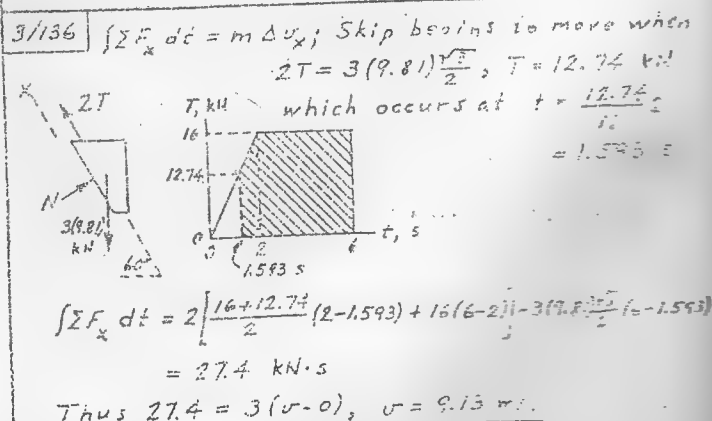 3/136 ∫ΣFₓ dt = m Δvₓ; Skip begins to move when
2T = 3(9.81)√3/2, T = 12.74 kN
which occurs at t = 12.74/
= 1.593 s
X
2T
N
3(9.81)
kN
60°
T, kN
16
12.74
0
0 2 6 t, s
1.593 s
∫ΣFₓ dt = 2[(16+12.74)/2 (2-1.593) + 16(6-2)] - 3(9.81)√3/2 (6-1.593)
= 27.4 kN·s
Thus 27.4 = 3(v-0), v = 9.13 m/s